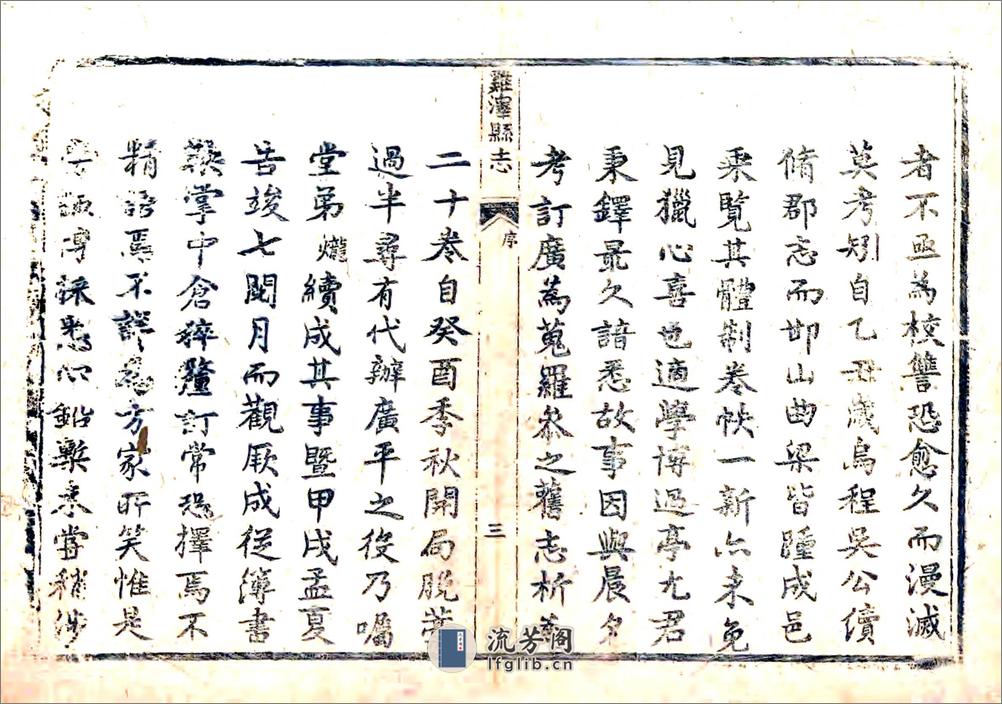 者不亟為校讐恐愈久而漫滅
莫考矧自乙丑歲烏程吳公續
脩郡志而邯山曲梁皆踵成邑
乘覽其體制卷帙一新亦未免
見獵心喜也適學博過亭尤君
秉鐸最久諳悉故事因與晨夕
考訂廣為蒐羅叅之舊志析為
雞澤縣志
序
三
二十卷自癸酉季秋開局脫藁
過半尋有代辦廣平之役乃囑
堂弟爖續成其事暨甲戌孟夏
告竣七閱月而觀厥成從簿書
鞅掌中倉猝釐訂常恐擇焉不
精語焉不詳為方家所笑惟是
博採悉心鉛槧未嘗稍涉
流芳阁
lfglib.cn